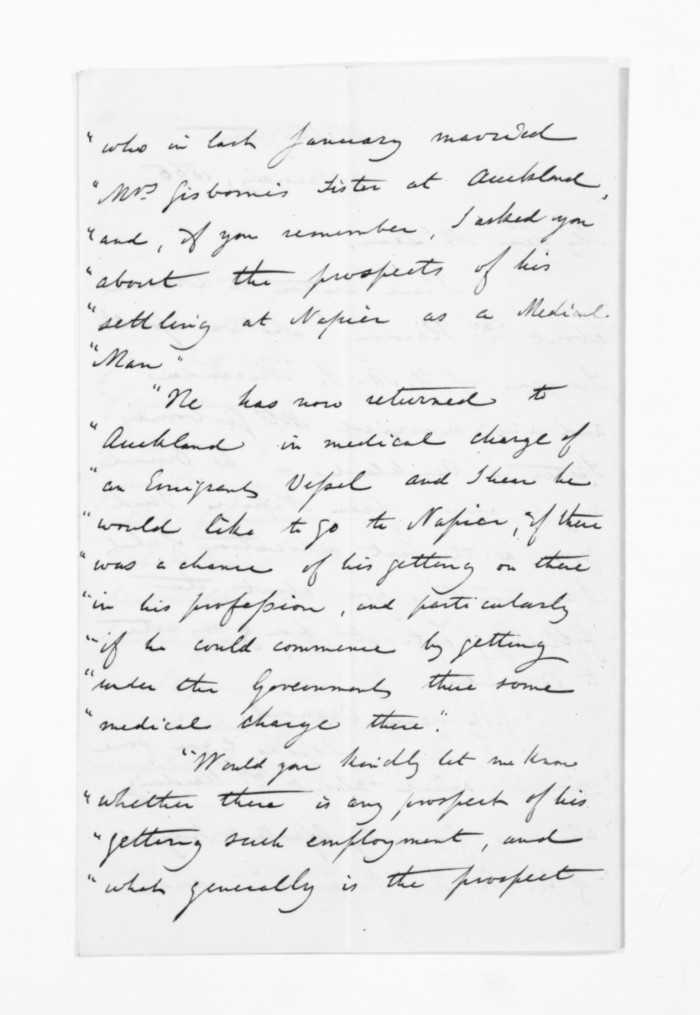 "who in last January married
"Mrs Gisborne's Sister at Auckland,
"and, if you remember, I asked you
"about the prospects of his
"settling at Napier as a Medical
"Man"
"He has now returned to
"Auckland in medical charge of
"an Emigrants Vessel and I hear he
"would like to go to Napier, if there
"was a chance of his getting on there
"in his profession, and particularly
"if he could commence by getting
"under the Government there some
"medical charge there".
"Would you kindly let me know
"whether there is any prospect of his
"getting such employment, and
"what generally is the prospect